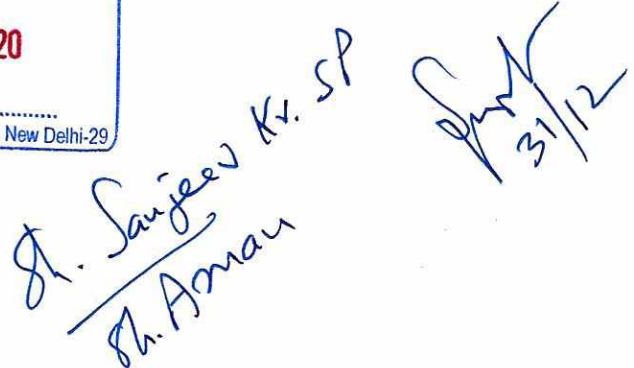 20
New Delhi-29
Sh. Sanjeev Kr. SP
Sh. Aman
31/12